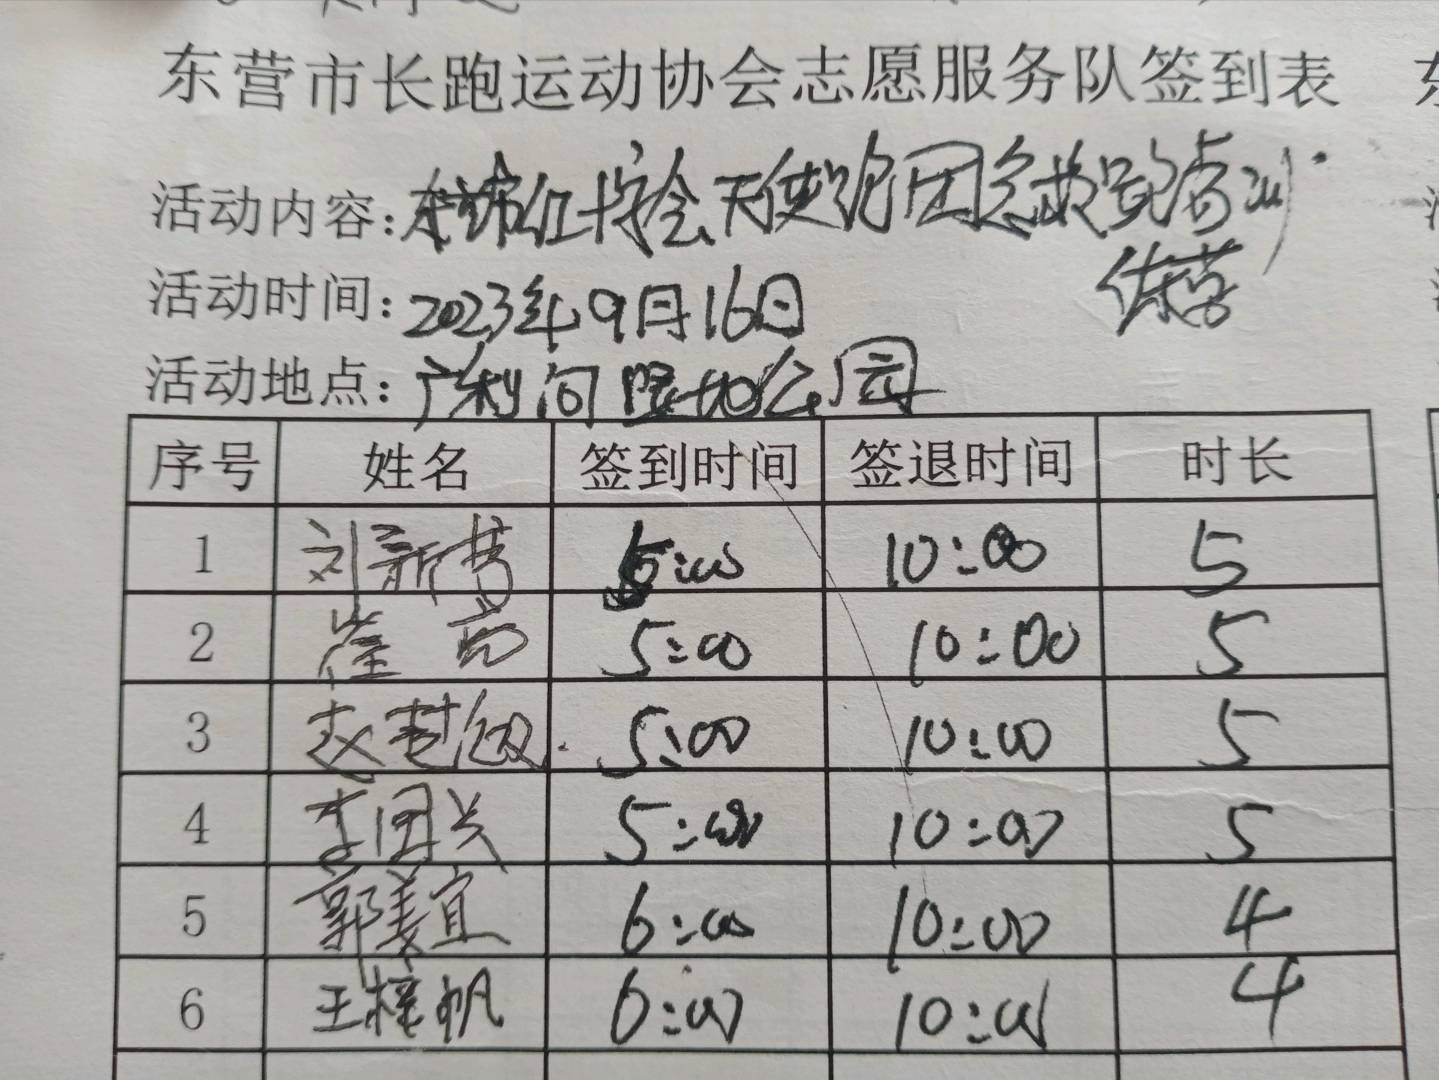 东营市长跑运动协会志愿服务队签到表
活动内容：东营市红十字会天使跑团急救跑者训
体营
活动时间：2023年9月16日
活动地点：广利河湿地公园
序号 姓名 签到时间 签退时间 时长
1 刘新营 5:00 10:00 5
2 崔 5:00 10:00 5
3 赵 5:00 10:00 5
4 李国兴 5:00 10:00 5
5 郭美宜 6:00 10:00 4
6 王 帆 6:00 10:00 4